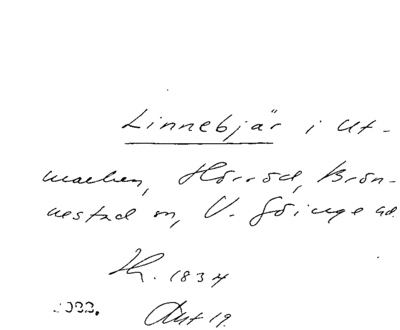 Linnebjär i Ut-
marken, Hörröd, Brön-
nestad sn, V. Göinge hd.
Th. 1834
Aut 19.